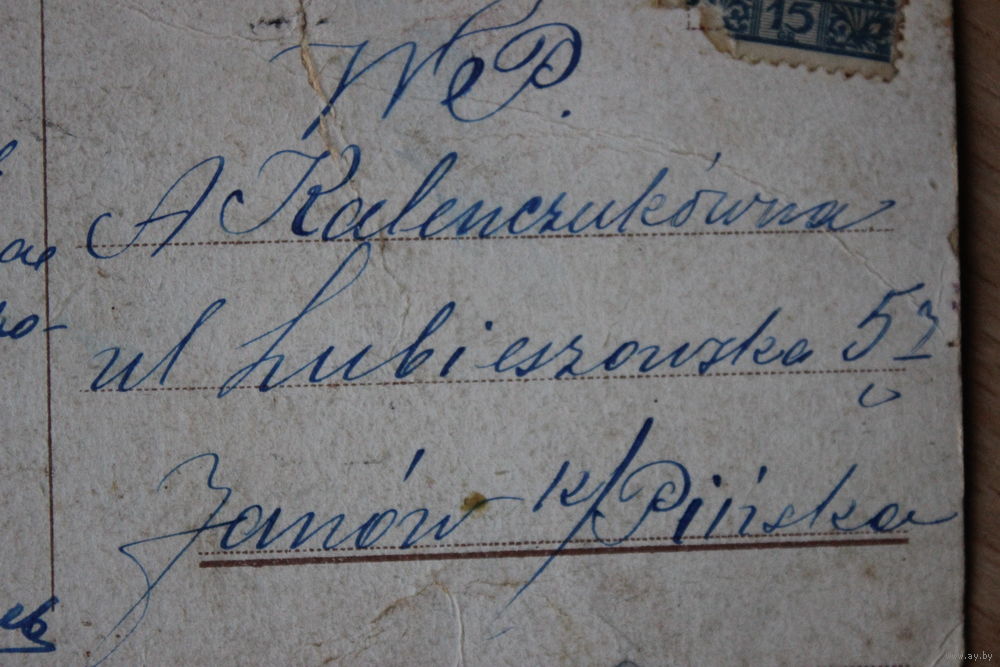 15
W P.
A Kalenczukówna
ul Lubieszowska 53
Janów k/Pińska
www.ay.by